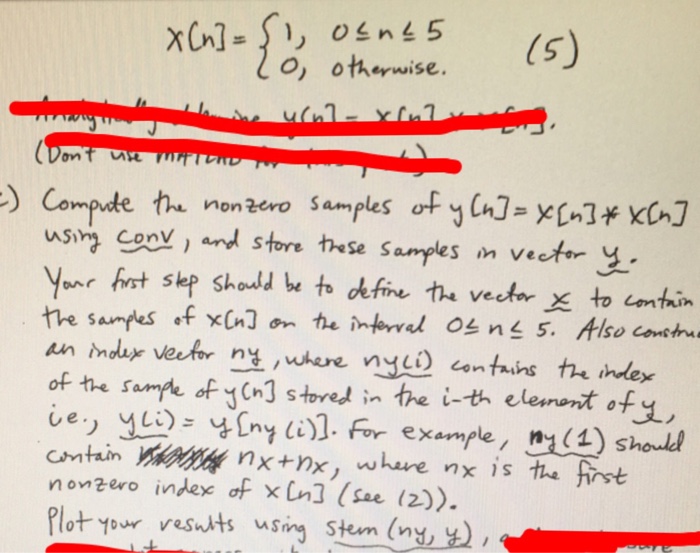 x[n] = { 1, 0 ≤ n ≤ 5
0, otherwise. (5)
y[n] = x[n]
(Don't use MATLAB for
c) Compute the nonzero samples of y[n] = x[n] * x[n]
using conv, and store these samples in vector y.
Your first step should be to define the vector x to contain
the samples of x[n] on the interval 0 ≤ n ≤ 5. Also constru
an index vector ny, where ny(i) contains the index
of the sample of y[n] stored in the i-th element of y,
i.e., y(i) = y[ny(i)]. For example, ny(1) should
contain nx+nx, where nx is the first
nonzero index of x[n] (see (2)).
Plot your results using stem(ny, y),